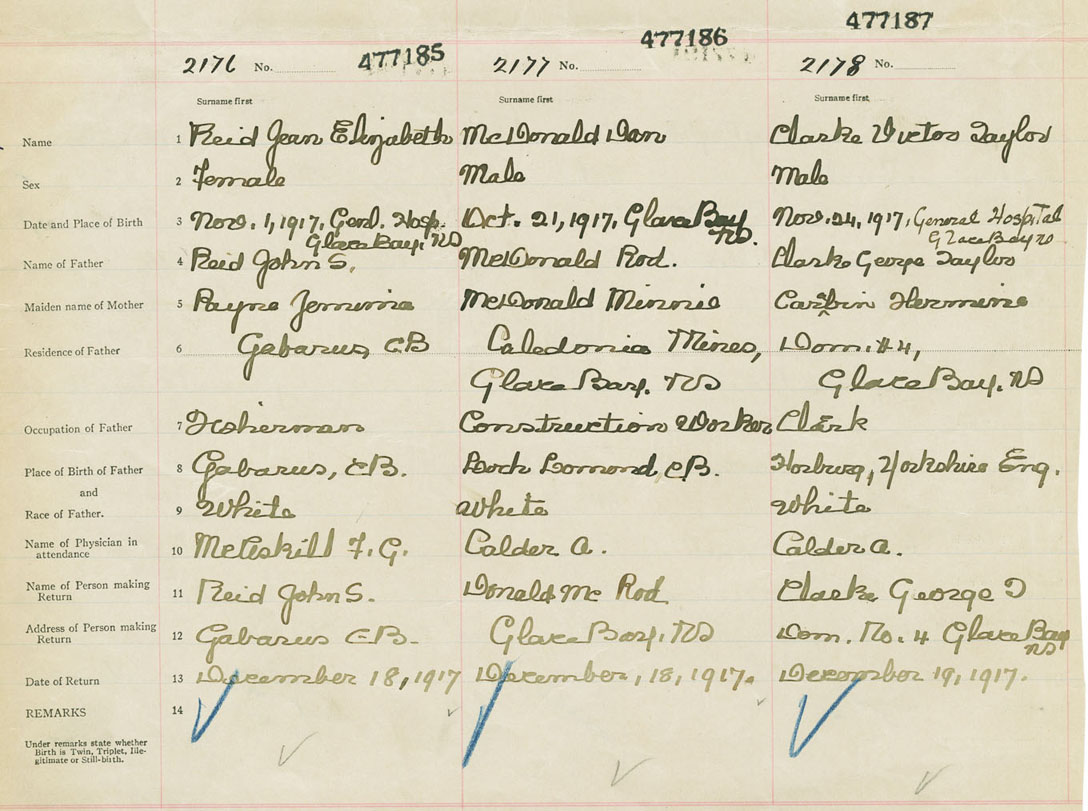 477185 477186 477187
2176 No. 2177 No. 2178 No.
Surname first Surname first Surname first
Name 1 Reid Jean Elizabeth McDonald Dan Clarke Victor Taylor
Sex 2 Female Male Male
Date and Place of Birth 3 Nov. 1, 1917, Genl. Hosp. Oct. 21, 1917, Glace Bay Nov. 24, 1917, General Hospital
Glace Bay, NS NS. Glace Bay NS
Name of Father 4 Reid John S. McDonald Rod. Clarke George Taylor
Maiden name of Mother 5 Payne Jemima McDonald Minnie Hermine
Residence of Father 6 Gabarus, CB Caledonia Mines, Dom. #4,
Glace Bay. NS Glace Bay. NS
Occupation of Father 7 Fisherman Construction Worker Clerk
Place of Birth of Father 8 Gabarus, CB. Loch Lomond, CB. Yorkshire Eng.
and
Race of Father. 9 White White White
Name of Physician in
attendance 10 F. G. Calder A. Calder A.
Name of Person making
Return 11 Reid John S. Donald Mc Rod Clarke George T
Address of Person making
Return 12 Gabarus CB. Glace Bay. NS Dom. No. 4 Glace Bay
NS
Date of Return 13 December 18, 1917 December, 18, 1917. December 19, 1917.
REMARKS 14
Under remarks state whether
Birth is Twin, Triplet, Ille-
gitimate or Still-birth.